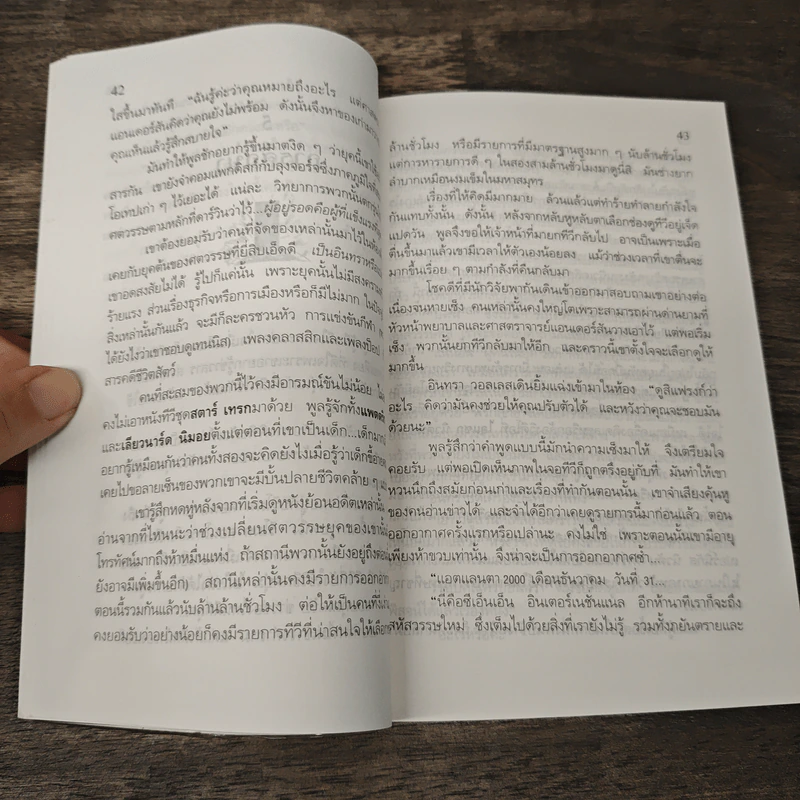 42
ใสขึ้นมาทันที "ฉันรู้ค่ะว่าคุณหมายถึงอะไร แต่
แอนเดอร์สันคิดว่าคุณยังไม่พร้อม ดังนั้นจึงหาของเก่ามา
คุณเห็นแล้วรู้สึกสบายใจ"
มันทำให้พูลชักอยากรู้ขึ้นมาตงิด ๆ ว่ายุคนี้เขาใช้
สารกัน เขายังจำคอมแพกดิสก์กับลุงจอร์จซึ่งภาคภูมิใจ
โอเทปเก่า ๆ ไว้เยอะได้ แน่ละ วิทยาการพวกนั้น
ศตวรรษตามหลักที่ดาร์วินว่าไว้...ผู้อยู่รอดคือผู้ที่แข็งแรง
เขาต้องยอมรับว่าคนที่จัดของเหล่านั้นมาไว้ในห้อง
เคยกับยุคต้นของศตวรรษที่ยี่สิบเอ็ดดี เป็นอินทราหรือ
เขาอดสงสัยไม่ได้ รู้ไปก็แค่นั้น เพราะยุคนั้นไม่มีสงคราม
ร้ายแรง ส่วนเรื่องธุรกิจหรือการเมืองหรือก็มีไม่มาก
สิ่งเหล่านั้นกันแล้ว จะมีก็ละครชวนหัว การแข่งขันกีฬา
ได้ยังไงว่าเขาชอบดูเทนนิส) เพลงคลาสสิกและเพลงป๊อป
สารคดีชีวิตสัตว์
คนที่สะสมของพวกนี้ไว้คงมีอารมณ์ขันไม่น้อย
คงไม่เอาหนังทีวีชุดสตาร์ เทรกมาด้วย พูลรู้จักทั้ง
และเลียวนาร์ด นิมอยตั้งแต่ตอนที่เขาเป็นเด็ก...เด็ก
อยากรู้เหมือนกันว่าคนทั้งสองจะคิดยังไงเมื่อรู้ว่าเด็กขี้อาย
เคยไปขอลายเซ็นของพวกเขาจะมีบั้นปลายชีวิตคล้าย ๆ
เขารู้สึกหดหู่หลังจากที่เริ่มดูหนังย้อนอดีตเหล่านั้น
อ่านจากที่ไหนนะว่าช่วงเปลี่ยนศตวรรษยุคของเขานั้น
โทรทัศน์มากถึงห้าหมื่นแห่ง ถ้าสถานีพวกนั้นยังอยู่ถึงตอน
ยังอาจมีเพิ่มขึ้นอีก) สถานีเหล่านั้นคงมีรายการออกอากาศ
ตอนนี้รวมกันแล้วนับล้านล้านชั่วโมง ต่อให้เป็นคนที่
คงยอมรับว่าอย่างน้อยก็คงมีรายการทีวีที่น่าสนใจให้เลือก
43
ล้านชั่วโมง หรือมีรายการที่มีมาตรฐานสูงมาก ๆ นับล้านชั่วโมง
แต่การหารายการดี ๆ ในสองสามล้านชั่วโมงมาดูนี่สิ มันช่างยาก
ลำบากเหมือนงมเข็มในมหาสมุทร
เรื่องที่ให้คิดมีมากมาย ล้วนแล้วแต่ทำร้ายทำลายกำลังใจ
กันแทบทั้งนั้น ดังนั้น หลังจากหลับหูหลับตาเลือกช่องดูทีวีอยู่เจ็ด
แปดวัน พูลจึงขอให้เจ้าหน้าที่มายกทีวีกลับไป อาจเป็นเพราะเมื่อ
ตื่นขึ้นมาแล้วเขามีเวลาให้ตัวเองน้อยลง แม้ว่าช่วงเวลาที่เขาตื่นจะ
มากขึ้นเรื่อย ๆ ตามกำลังที่คืนกลับมา
โชคดีที่มีนักวิจัยพากันเดินเข้าออกมาสอบถามเขาอย่างต่อ
เนื่องจนหายเซ็ง คนเหล่านั้นคงใหญ่โตเพราะสามารถผ่านด่านยามที่
หัวหน้าพยาบาลและศาสตราจารย์แอนเดอร์สันวางเอาไว้ แต่พอเริ่ม
เซ็ง พวกนั้นยกทีวีกลับมาให้อีก และคราวนี้เขาตั้งใจจะเลือกดูให้
มากขึ้น
อินทรา วอลเลสเดินยิ้มแฉ่งเข้ามาในห้อง "ดูสิแฟรงก์ว่า
อะไร คิดว่ามันคงช่วยให้คุณปรับตัวได้ และหวังว่าคุณจะชอบมัน
ด้วยนะ"
พูลรู้สึกว่าคำพูดแบบนี้มักนำความเซ็งมาให้ จึงเตรียมใจ
คอยรับ แต่พอเปิดเห็นภาพในจอทีวีก็ถูกตรึงอยู่กับที่ มันทำให้เขา
หวนนึกถึงสมัยก่อนเก่าและเรื่องที่ทำกันตอนนั้น เขาจำเสียงคุ้นหู
ของคนอ่านข่าวได้ และจำได้อีกว่าเคยดูรายการนี้มาก่อนแล้ว ตอน
ออกอากาศครั้งแรกหรือเปล่านะ คงไม่ใช่ เพราะตอนนั้นเขามีอายุ
เพียงห้าขวบเท่านั้น จึงน่าจะเป็นการออกอากาศซ้ำ...
"แอตแลนตา 2000 เดือนธันวาคม วันที่ 31...
"นี่คือซีเอ็นเอ็น อินเตอร์เนชั่นแนล อีกห้านาทีเราก็จะถึง
สหัสวรรษใหม่ ซึ่งเต็มไปด้วยสิ่งที่เรายังไม่รู้ รวมทั้งภยันตรายและ